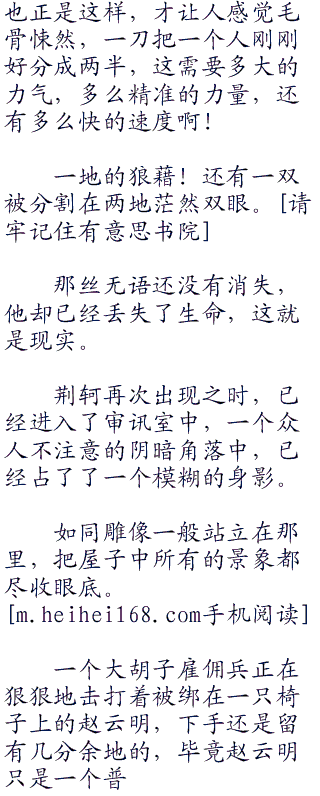 也正是这样，才让人感觉毛
骨悚然，一刀把一个人刚刚
好分成两半，这需要多大的
力气，多么精准的力量，还
有多么快的速度啊！
一地的狼藉！还有一双
被分割在两地茫然双眼。[请
牢记住有意思书院]
那丝无语还没有消失，
他却已经丢失了生命，这就
是现实。
荆轲再次出现之时，已
经进入了审讯室中，一个众
人不注意的阴暗角落中，已
经占了了一个模糊的身影。
如同雕像一般站立在那
里，把屋子中所有的景象都
尽收眼底。
[m.heihei168.com手机阅读]
一个大胡子雇佣兵正在
狠狠地击打着被绑在一只椅
子上的赵云明，下手还是留
有几分余地的，毕竟赵云明
只是一个普